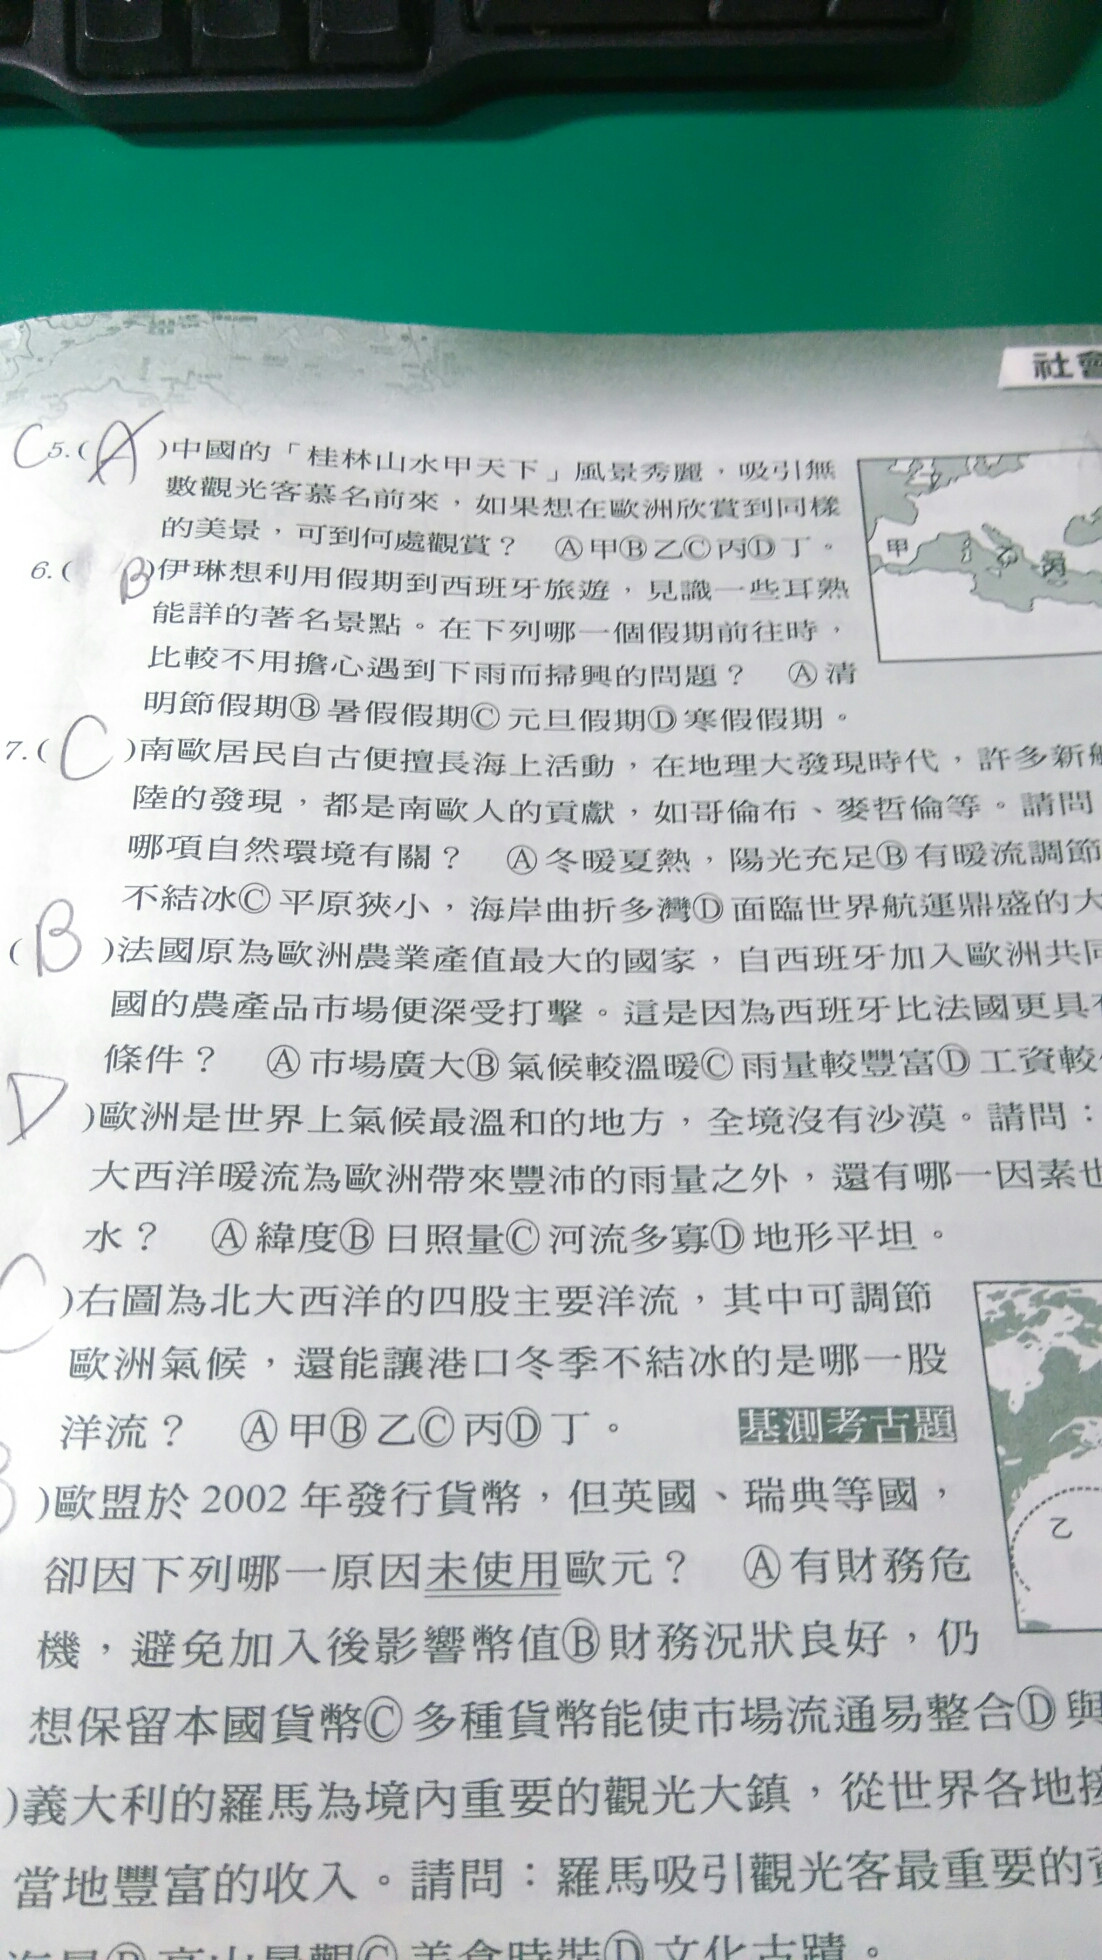 社會
C5.(A)中國的「桂林山水甲天下」風景秀麗，吸引無
數觀光客慕名前來，如果想在歐洲欣賞到同樣
的美景，可到何處觀賞？ Ⓐ甲Ⓑ乙Ⓒ丙Ⓓ丁。
甲
乙
丙
6.( B)伊琳想利用假期到西班牙旅遊，見識一些耳熟
能詳的著名景點。在下列哪一個假期前往時，
比較不用擔心遇到下雨而掃興的問題？ Ⓐ清
明節假期Ⓑ暑假假期Ⓒ元旦假期Ⓓ寒假假期。
7.( C )南歐居民自古便擅長海上活動，在地理大發現時代，許多新航
陸的發現，都是南歐人的貢獻，如哥倫布、麥哲倫等。請問
哪項自然環境有關？ Ⓐ冬暖夏熱，陽光充足Ⓑ有暖流調節
不結冰Ⓒ平原狹小，海岸曲折多灣Ⓓ面臨世界航運鼎盛的大
( B )法國原為歐洲農業產值最大的國家，自西班牙加入歐洲共同
國的農產品市場便深受打擊。這是因為西班牙比法國更具有
條件？ Ⓐ市場廣大Ⓑ氣候較溫暖Ⓒ雨量較豐富Ⓓ工資較
D )歐洲是世界上氣候最溫和的地方，全境沒有沙漠。請問：
大西洋暖流為歐洲帶來豐沛的雨量之外，還有哪一因素也
水？ Ⓐ緯度Ⓑ日照量Ⓒ河流多寡Ⓓ地形平坦。
C )右圖為北大西洋的四股主要洋流，其中可調節
歐洲氣候，還能讓港口冬季不結冰的是哪一股
洋流？ Ⓐ甲Ⓑ乙Ⓒ丙Ⓓ丁。 基測考古題
乙
B )歐盟於 2002 年發行貨幣，但英國、瑞典等國，
卻因下列哪一原因未使用歐元？ Ⓐ有財務危
機，避免加入後影響幣值Ⓑ財務況狀良好，仍
想保留本國貨幣Ⓒ多種貨幣能使市場流通易整合Ⓓ與
)義大利的羅馬為境內重要的觀光大鎮，從世界各地接
當地豐富的收入。請問：羅馬吸引觀光客最重要的資
海景Ⓑ高山景觀Ⓒ美食時裝Ⓓ文化古蹟。